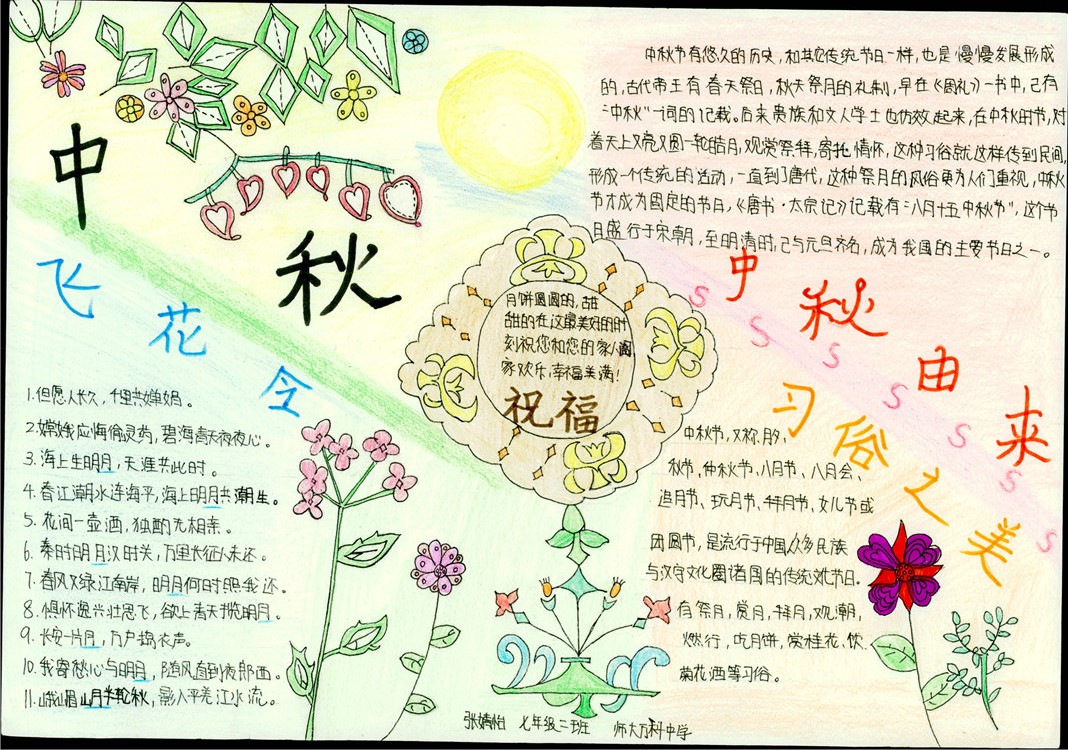 中秋
飞花令
1.但愿人长久，千里共婵娟。
2.嫦娥应悔偷灵药，碧海青天夜夜心。
3.海上生明月，天涯共此时。
4.春江潮水连海平，海上明月共潮生。
5.花间一壶酒，独酌无相亲。
6.秦时明月汉时关，万里长征人未还。
7.春风又绿江南岸，明月何时照我还。
8.俱怀逸兴壮思飞，欲上青天揽明月。
9.长安一片月，万户捣衣声。
10.我寄愁心与明月，随风直到夜郎西。
11.峨嵋山月半轮秋，影入平羌江水流。
月饼圆圆的，甜
甜的在这最美好的时
刻祝您和您的家人阖
家欢乐，幸福美满！
祝福
中秋节有悠久的历史，和其它传统节日一样，也是慢慢发展形成
的，古代帝王有春天祭日，秋天祭月的礼制，早在《周礼》一书中，已有
“中秋”一词的记载。后来贵族和文人学士也仿效起来，在中秋时节，对
着天上又亮又圆一轮皓月，观赏祭拜，寄托情怀，这种习俗就这样传到民间，
形成一个传统的活动，一直到了唐代，这种祭月的风俗更为人们重视，中秋
节才成为固定的节日，《唐书·太宗记》记载有“八月十五中秋节”，这个节
日盛行于宋朝，至明清时，已与元旦齐名，成为我国的主要节日之一。
中秋由来
习俗之美
中秋节，又称月夕，
秋节、仲秋节、八月节、八月会、
追月节、玩月节、拜月节、女儿节或
团圆节，是流行于中国众多民族
与汉字文化圈诸国的传统文化节日。
有祭月，赏月，拜月，观潮，
燃灯，吃月饼，赏桂花、饮
菊花酒等习俗。
张婧怡 七年级二班 师大万科中学